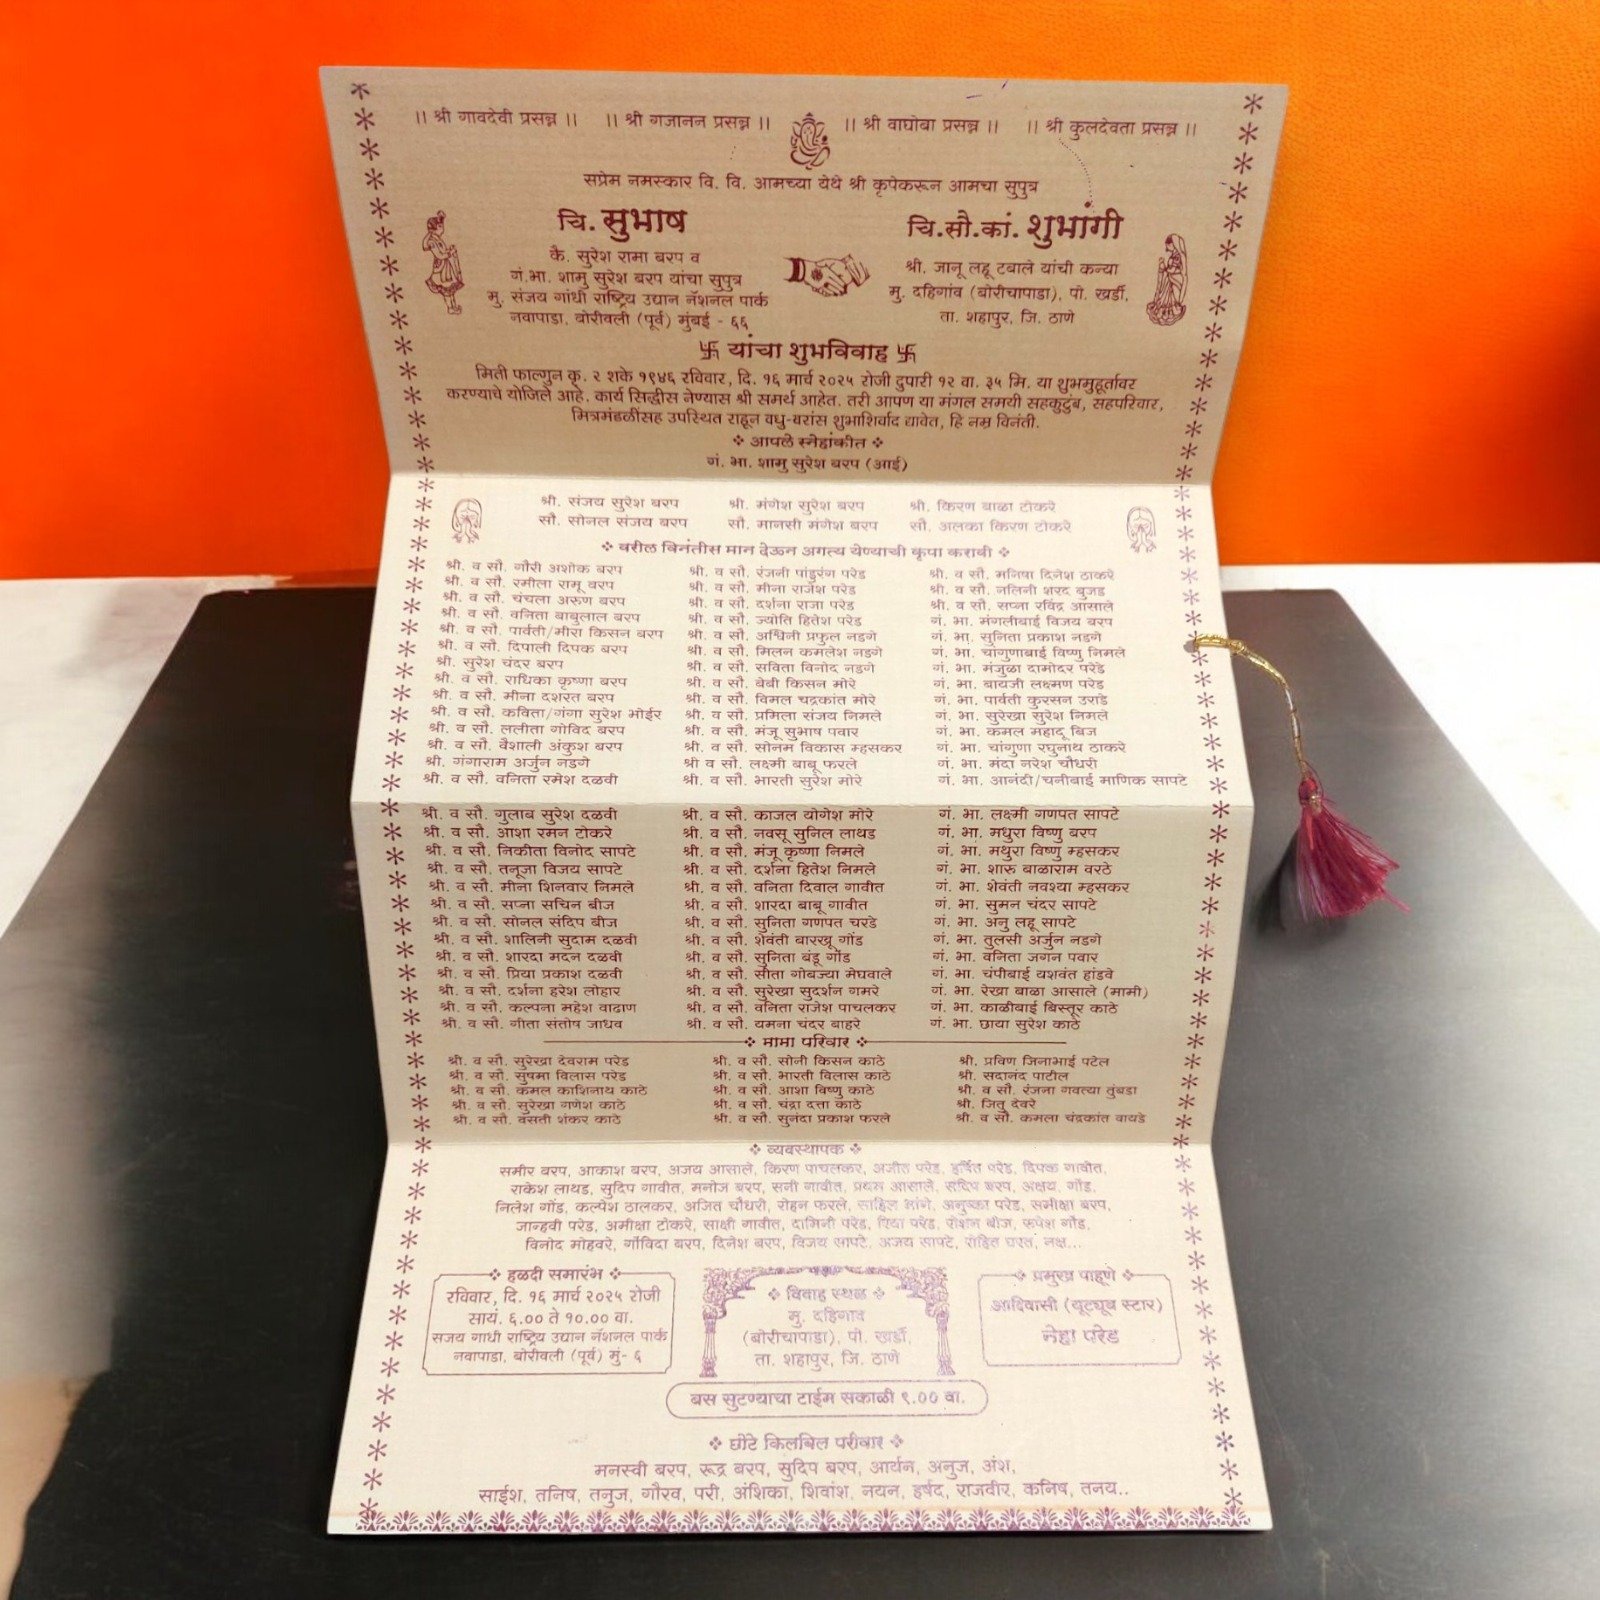 ।। श्री गावदेवी प्रसन्न ।। ।। श्री गजानन प्रसन्न ।। ।। श्री वाघोबा प्रसन्न ।। ।। श्री कुलदेवता प्रसन्न ।।
सप्रेम नमस्कार वि. वि. आमच्या येथे श्री कृपेकरून आमचा सुपुत्र
चि. सुभाष
कै. सुरेश रामा बरप व
गं.भा. शामु सुरेश बरप यांचा सुपुत्र
मु. संजय गांधी राष्ट्रिय उद्यान नॅशनल पार्क
नवापाडा, बोरीवली (पूर्व) मुंबई - ६६
चि.सौ.कां. शुभांगी
श्री. जानू लहू टबाले यांची कन्या
मु. दहिगांव (बोरीचापाडा), पो. खर्डी,
ता. शहापुर, जि. ठाणे
卐 यांचा शुभविवाह 卐
मिती फाल्गुन कृ. २ शके १९४६ रविवार, दि. १६ मार्च २०२५ रोजी दुपारी १२ वा. ३५ मि. या शुभमुहूर्तावर
करण्याचे योजिले आहे. कार्य सिद्धीस नेण्यास श्री समर्थ आहेत. तरी आपण या मंगल समयी सहकुटुंब, सहपरिवार,
मित्रमंडळींसह उपस्थित राहून वधु-वरांस शुभाशिर्वाद द्यावेत, हि नम्र विनंती.
❖ आपले स्नेहांकीत ❖
गं. भा. शामु सुरेश बरप (आई)
श्री. संजय सुरेश बरप श्री. मंगेश सुरेश बरप श्री. किरण बाळा टोकरे
सौ. सोनल संजय बरप सौ. मानसी मंगेश बरप सौ. अलका किरण टोकरे
❖ वरील विनंतीस मान देऊन अगत्य येण्याची कृपा करावी ❖
श्री. व सौ. गौरी अशोक बरप
श्री. व सौ. रमीला रामू बरप
श्री. व सौ. चंचला अरुण बरप
श्री. व सौ. वनिता बाबुलाल बरप
श्री. व सौ. पार्वती/मीरा किसन बरप
श्री. व सौ. दिपाली दिपक बरप
श्री. सुरेश चंदर बरप
श्री. व सौ. राधिका कृष्णा बरप
श्री. व सौ. मीना दशरत बरप
श्री. व सौ. कविता/गंगा सुरेश भोईर
श्री. व सौ. ललीता गोविद बरप
श्री. व सौ. वैशाली अंकुश बरप
श्री. गंगाराम अर्जुन नडगे
श्री. व सौ. वनिता रमेश दळवी
श्री. व सौ. गुलाब सुरेश दळवी
श्री. व सौ. आशा रमन टोकरे
श्री. व सौ. निकीता विनोद सापटे
श्री. व सौ. तनूजा विजय सापटे
श्री. व सौ. मीना शिनवार निमले
श्री. व सौ. सप्ना सचिन बीज
श्री. व सौ. सोनल संदिप बीज
श्री. व सौ. शालिनी सुदाम दळवी
श्री. व सौ. शारदा मदन दळवी
श्री. व सौ. प्रिया प्रकाश दळवी
श्री. व सौ. दर्शना हरेश लोहार
श्री. व सौ. कल्पना महेश वाढाण
श्री. व सौ. गीता संतोष जाधव
श्री. व सौ. रंजनी पांडुरंग परेड
श्री. व सौ. मीना राजेश परेड
श्री. व सौ. दर्शना राजा परेड
श्री. व सौ. ज्योति हितेश परेड
श्री. व सौ. अश्विनी प्रफुल नडगे
श्री. व सौ. मिलन कमलेश नडगे
श्री. व सौ. सविता विनोद नडगे
श्री. व सौ. बेबी किसन मोरे
श्री. व सौ. विमल चद्रकांत मोरे
श्री. व सौ. प्रमिला संजय निमले
श्री. व सौ. मंजू सुभाष पवार
श्री. व सौ. सोनम विकास म्हसकर
श्री व सौ. लक्ष्मी बाबू फरले
श्री. व सौ. भारती सुरेश मोरे
श्री. व सौ. काजल योगेश मोरे
श्री. व सौ. नवसू सुनिल लाथड
श्री. व सौ. मंजू कृष्णा निमले
श्री. व सौ. दर्शना हितेश निमले
श्री. व सौ. वनिता दिवाल गावीत
श्री. व सौ. शारदा बाबू गावीत
श्री. व सौ. सुनिता गणपत चरडे
श्री. व सौ. शेवंती बारखू गोंड
श्री. व सौ. सुनिता बंडू गोंड
श्री. व सौ. सीता गोबज्या मेघवाले
श्री. व सौ. सुरेखा सुदर्शन गमरे
श्री. व सौ. वनिता राजेश पाचलकर
श्री. व सौ. यमना चंदर बाहरे
श्री. व सौ. मनिषा दिनेश ठाकरे
श्री. व सौ. नलिनी शरद बुजड
श्री. व सौ. सप्ना रविंद्र आसाले
गं. भा. मंगलीबाई विजय बरप
गं. भा. सुनिता प्रकाश नडगे
गं. भा. चांगुणाबाई विष्णु निमले
गं. भा. मंजुळा दामोदर परेड
गं. भा. बायजी लक्ष्मण परेड
गं. भा. पार्वती कुरसन उराडे
गं. भा. सुरेखा सुरेश निमले
गं. भा. कमल महादू बिज
गं. भा. चांगुणा रघुनाथ ठाकरे
गं. भा. मंदा नरेश चौधरी
गं. भा. आनंदी/चनीबाई माणिक सापटे
गं. भा. लक्ष्मी गणपत सापटे
गं. भा. मधुरा विष्णु बरप
गं. भा. मथुरा विष्णु म्हसकर
गं. भा. शारू बाळाराम वरठे
गं. भा. शेवंती नवश्या म्हसकर
गं. भा. सुमन चंदर सापटे
गं. भा. अनु लहू सापटे
गं. भा. तुलसी अर्जुन नडगे
गं. भा. वनिता जगन पवार
गं. भा. चंपीबाई यशवंत हांडवे
गं. भा. रेखा बाळा आसाले (मामी)
गं. भा. काळीबाई बिस्तूर काठे
गं. भा. छाया सुरेश काठे
❖ मामा परिवार ❖
श्री. व सौ. सुरेखा देवराम परेड
श्री. व सौ. सुषमा विलास परेड
श्री. व सौ. कमल काशिनाथ काठे
श्री. व सौ. सुरेखा गणेश काठे
श्री. व सौ. वसंती शंकर काठे
श्री. व सौ. सोनी किसन काठे
श्री. व सौ. भारती विलास काठे
श्री. व सौ. आशा विष्णु काठे
श्री. व सौ. चंद्रा दत्ता काठे
श्री. व सौ. सुनंदा प्रकाश फरले
श्री. प्रविण जिनाभाई पटेल
श्री. सदानंद पाटील
श्री. व सौ. रंजना गवत्या तुंबडा
श्री. जितु देवरे
श्री. व सौ. कमला चंद्रकांत वायडे
❖ व्यवस्थापक ❖
समीर बरप, आकाश बरप, अजय आसाले, किरण पाचलकर, अजीत परेड, हर्षित परेड, दिपक गावीत,
राकेश लाथड, सुदिप गावीत, मनोज बरप, सनी गावीत, प्रथम आसाले, संदिप बरप, अक्षय, गोंड,
निलेश गोंड, कल्पेश ठालकर, अजित चौधरी, रोहन फरले, साहिल अनुष्का परेड, समीक्षा बरप,
जान्हवी परेड, अमीक्षा टोकरे, साक्षी गावीत, दामिनी परेड, रिया परेड, रोशन बीज, रूपेश गोंड,
विनोद मोहवरे, गोंविदा बरप, दिनेश बरप, विजय सापटे, अजय सापटे, रोहित घरत, नक्ष...
❖ हळदी समारंभ ❖
रविवार, दि. १६ मार्च २०२५ रोजी
सायं. ६.०० ते १०.०० वा.
संजय गांधी राष्ट्रिय उद्यान नॅशनल पार्क
नवापाडा, बोरीवली (पूर्व) मुं- ६
❖ विवाह स्थळ ❖
मु. दहिगाव
(बोरीचापाडा), पो. खर्डी,
ता. शहापुर, जि. ठाणे
❖ प्रमुख पाहूणे ❖
आदिवासी (यूट्यूब स्टार)
नेहा परेड
बस सुटण्याचा टाईम सकाळी ९.०० वा.
❖ छोटे किलबिल परीवार ❖
मनस्वी बरप, रूद्र बरप, सुदिप बरप, आर्यन, अनुज, अंश,
साईश, तनिष, तनुज, गौरव, परी, अंशिका, शिवांश, नयन, हर्षद, राजवीर, कनिष, तनय..